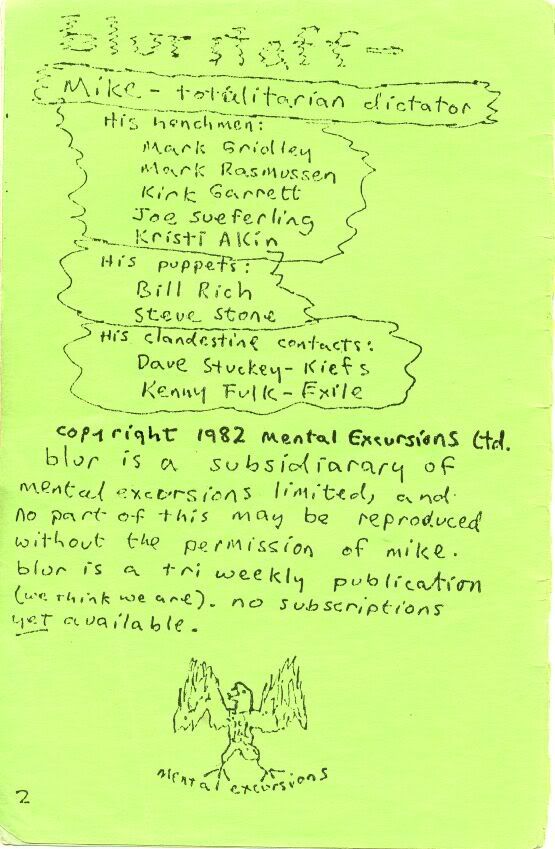 blur staff -
Mike - totalitarian dictator
His henchmen:
Mark Gridley
Mark Rasmussen
Kirk Garrett
Joe Sueferling
Kristi Akin
His puppets:
Bill Rich
Steve Stone
His clandestine contacts:
Dave Stuckey - Kiefs
Kenny Fulk - Exile
copyright 1982 Mental Excursions Ltd.
blur is a subsidiarary of
mental excursions limited, and
no part of this may be reproduced
without the permission of mike.
blur is a tri weekly publication
(we think we are). no subscriptions
yet available.
mental excursions
2